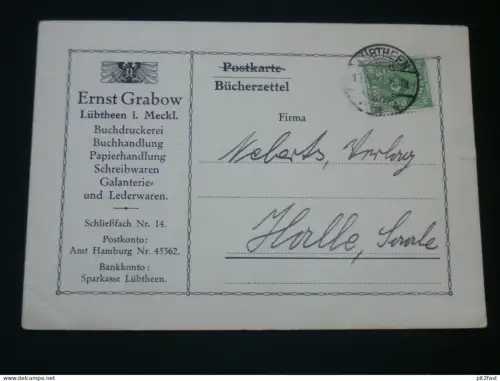 Ernst Grabow
Lübtheen i. Meckl.
Buchdruckerei
Buchhandlung
Papierhandlung
Schreibwaren
Galanterie-
und Lederwaren.
Schließfach Nr. 14.
Postkonto:
Amt Hamburg Nr. 45362.
Bankkonto:
Sparkasse Lübtheen.
Postkarte
Bücherzettel
Firma
Verlag
Halle, Saale
LÜBTHEEN